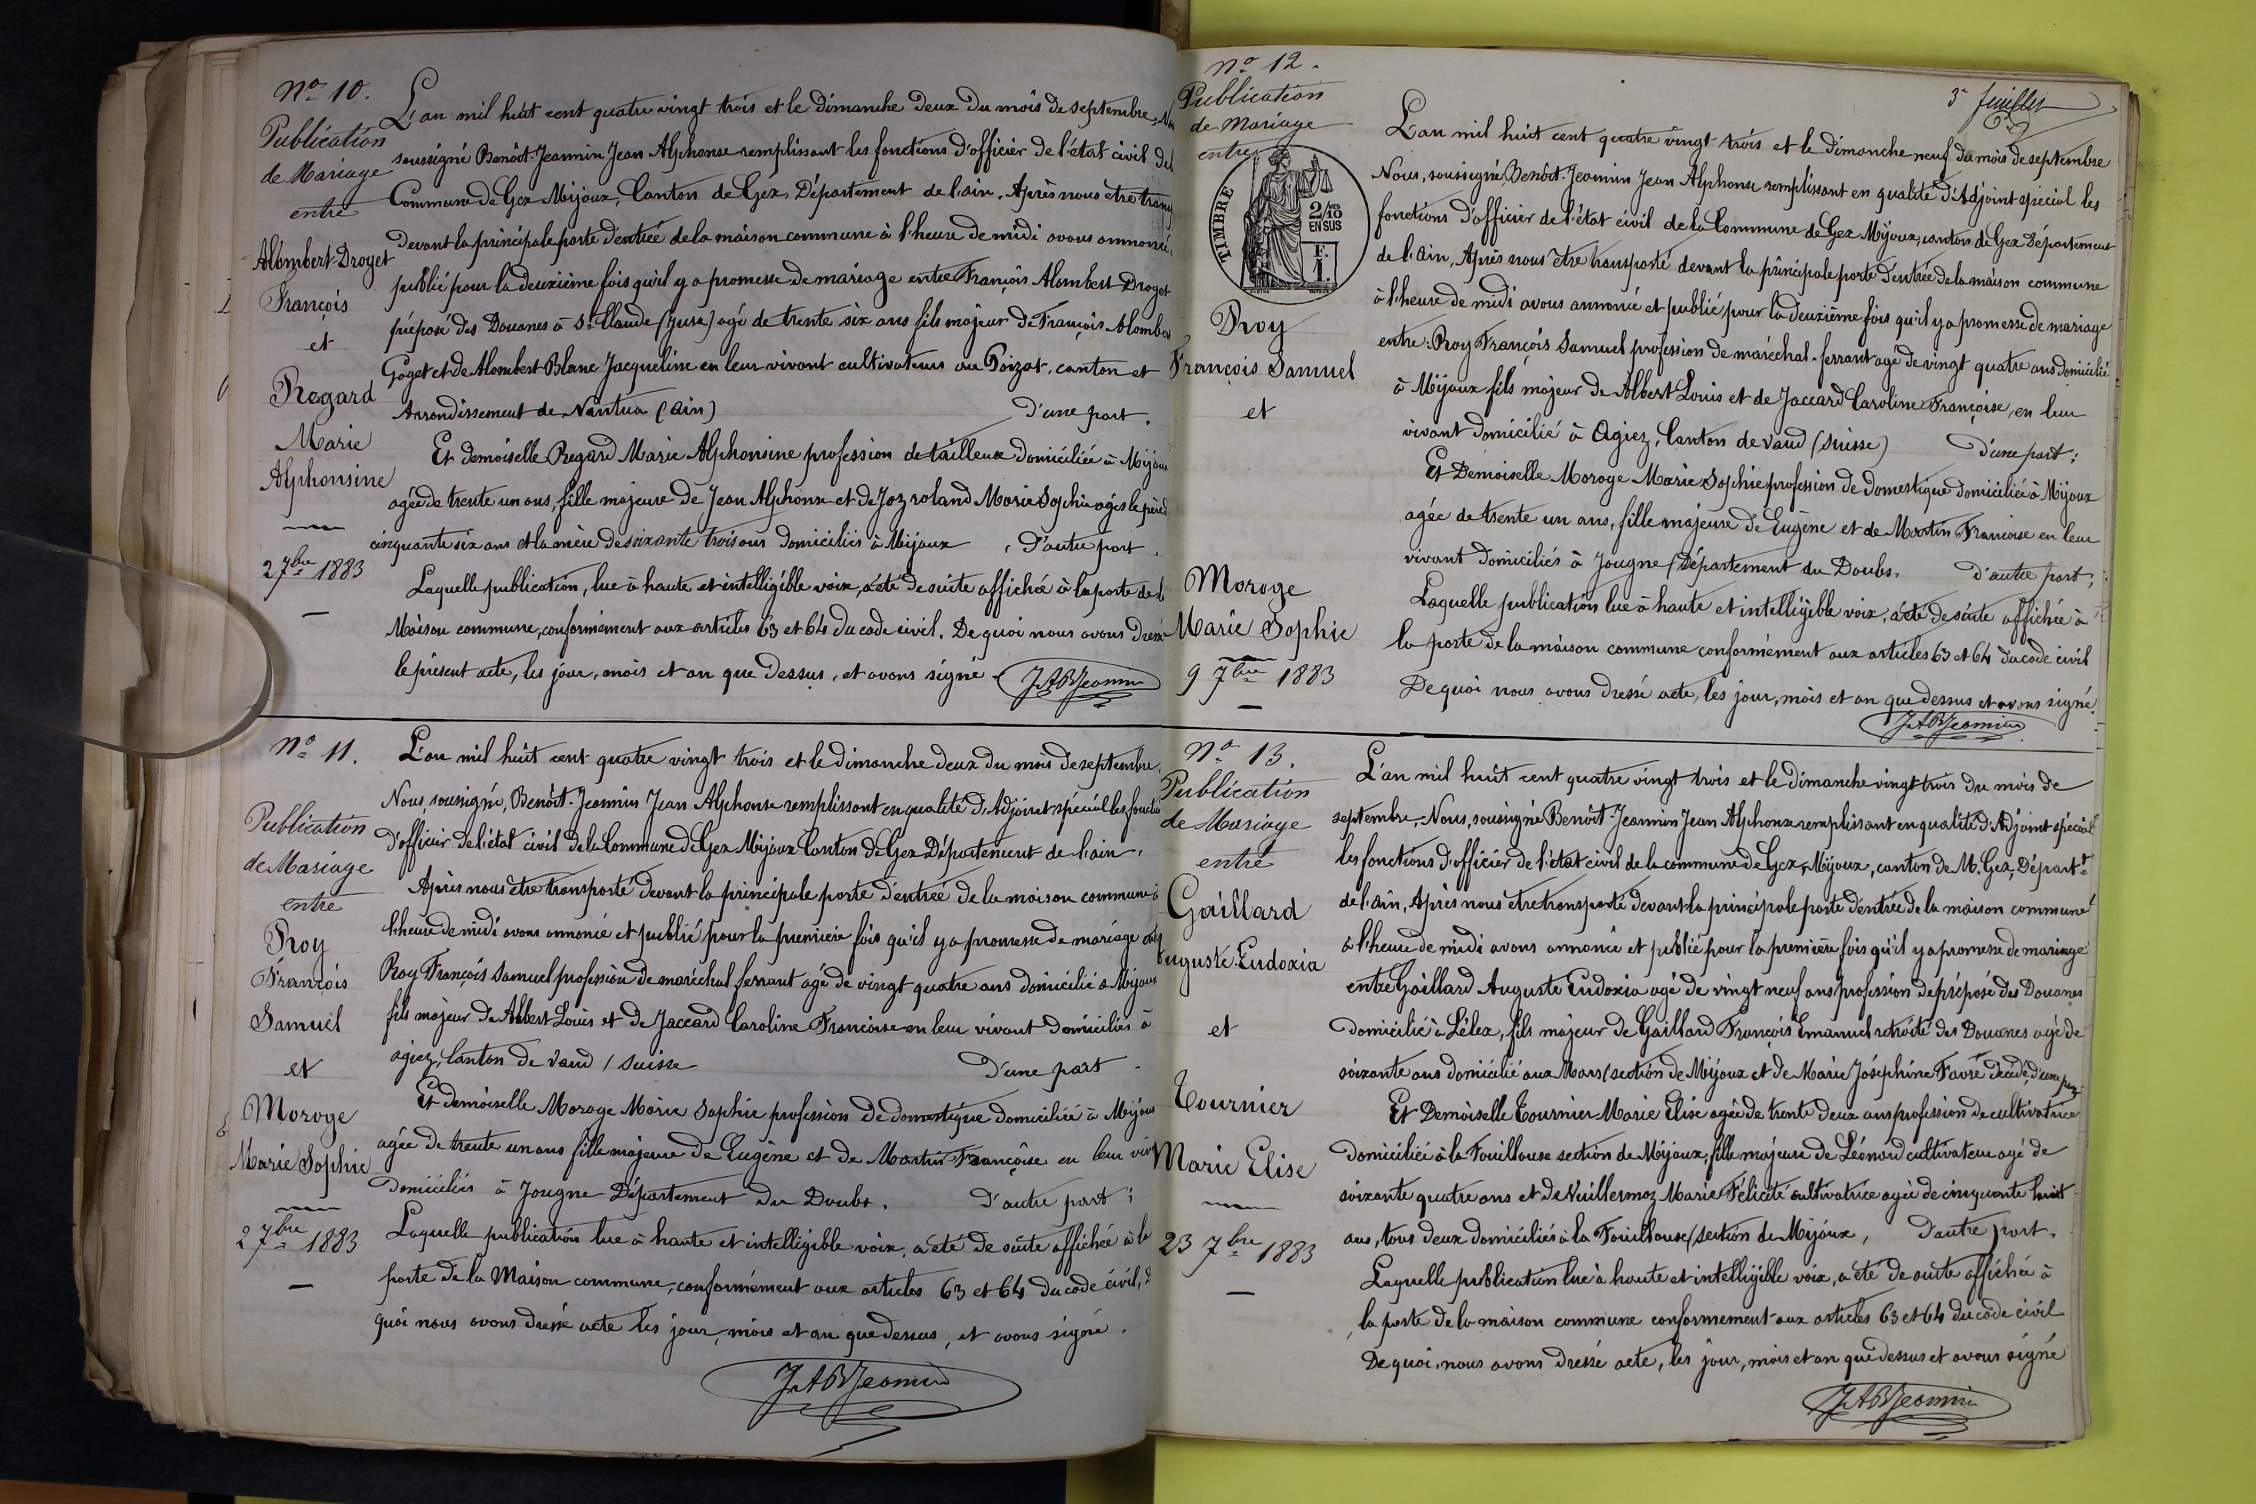 No 10.
Publication
de Mariage
entre
Alombert-Droget
François
et
Regard
Marie
Alphonsine
2 7bre 1883
L'an mil huit cent quatre vingt trois et le dimanche deux du mois de septembre, Nous
soussigné Benoît-Jeannin Jean Alphonse remplissant les fonctions d'officier de l'état civil de
Commune de Gex Mijoux, Canton de Gex, Département de l'ain. Après nous etre
devant la principale porte d'entrée de la maison commune à l'heure de midi avons annoncé
publié pour la deuxième fois qu'il y a promesse de mariage entre François Alombert-Droget
préposé des Douanes à St Claude (Jura) agé de trente six ans fils majeur de François Alombert
Goget et de Alombert-Blanc Jacqueline en leur vivant cultivateurs au Poizat, canton et
Arrondissement de Nantua (Ain) D'une part.
Et demoiselle Regard Marie Alphonsine profession de tailleuse domiciliée à Mijoux
agée de trente un ans, fille majeure de Jean Alphonse et de Joz roland Marie Sophie agés le père de
cinquante six ans et la mère de soixante trois ans domiciliés à Mijoux, D'autre part.
Laquelle publication, lue à haute et intelligible voix, a été de suite affichée à la porte de la
Maison commune, conformément aux articles 63 et 64 du code civil. De quoi nous avons dressé
le présent acte, les jour, mois et an que dessus, et avons signé
JABJeannin
No 11.
Publication
de Mariage
entre
Roy
François
Samuel
et
Moroge
Marie Sophie
2 7bre 1883
L'an mil huit cent quatre vingt trois et le dimanche deux du mois de septembre,
Nous, soussigné, Benoît-Jeannin Jean Alphonse remplissant en qualité d'Adjoint spécial les
d'officier de l'état civil de la Commune de Gex Mijoux Canton de Gex Département de l'ain.
Après nous être transporté devant la principale porte d'entrée de la maison commune à
l'heure de midi avons annoncé et publié pour la premiere fois qu'il y a promesse de mariage
Roy François Samuel profession de maréchal ferrant agé de vingt quatre ans domicilié à Mijoux
fils majeur de Albert Louis et de Jaccard Caroline Françoise en leur vivant domiciliés à
agiez, Canton de Vaud / Suisse D'une part.
Et demoiselle Moroge Marie Sophie profession de domestique domiciliée à Mijoux
agée de trente un ans fille majeure de Eugène et de Martin Françoise en leur
domiciliés à Jougne Département du Doubs. D'autre part;
Laquelle publication lue à haute et intelligible voix, a été de suite affichée à la
porte de la Maison commune, conformément aux articles 63 et 64 du code civil, de
quoi nous avons dressé acte les jour, mois et an que dessus, et avons signé.
JABJeannin
3e feuillet
No 12.
Publication
de Mariage
entre
TIMBRE
2/10
EN SUS
F.
1.
Roy
François Samuel
et
Moroge
Marie Sophie
9 7bre 1883
L'an mil huit cent quatre vingt-trois et le dimanche neuf du mois de septembre
Nous, soussigné, Benoît-Jeannin Jean Alphonse remplissant en qualité d'Adjoint spécial les
fonctions d'officier de l'état civil de la Commune de Gex Mijoux, canton de Gex Département
de l'ain, Après nous être transporté devant la principale porte d'entrée de la maison commune
à l'heure de midi avons annoncé et publié pour la deuxième fois qu'il y a promesse de mariage
entre: Roy François Samuel profession de maréchal-ferrant agé de vingt quatre ans domicilié
à Mijoux fils majeur de Albert Louis et de Jaccard Caroline Françoise, en leur
vivant domicilié à Agiez, Canton de Vaud (Suisse) D'une part;
Et Demoiselle Moroge Marie Sophie profession de domestique domiciliée à Mijoux
agée de trente un ans, fille majeure de Eugène et de Martin Francoise en leur
vivant domiciliés à Jougne (Département du Doubs. D'autre part;
Laquelle publication lue à haute et intelligible voix, a été de suite affichée à
la porte de la maison commune conformément aux articles 63 et 64 du code civil
De quoi nous avons dressé acte, les jour, mois et an que dessus et avons signé.
JABJeannin
No 13.
Publication
de Mariage
entre
Gaillard
Auguste Eudoxia
et
Tournier
Marie Elise
23 7bre 1883
L'an mil huit cent quatre vingt trois et le dimanche vingt trois du mois de
septembre, Nous, soussigné Benoît-Jeannin Jean Alphonse remplissant en qualité d'Adjoint spécial
les fonctions d'officier de l'état civil de la commune de Gex, Mijoux, canton de M. Gex, Départt
de l'ain, Après nous etre transporté devant la principale porte d'entrée de la maison commune
à l'heure de midi avons annoncé et publié pour la première fois qu'il y a promesse de mariage
entre Gaillard Auguste Eudoxia agé de vingt neuf ans profession de préposé des Douanes
domicilié à Lélex, fils majeur de Gaillard François Emanuel retraité des Douanes agé de
soixante ans domicilié aux Mars (section de Mijoux et de Marie Joséphine Favre décédé, d'une part
Et Demoiselle Tournier Marie Elise agée de trente deux ans profession de cultivatrice
domiciliée à la Fouillouse section de Mijoux, fille majeure de Léonard cultivateur agé de
soixante quatre ans et de Vuillermoz Marie Félicité cultivatrice agée de cinquante huit
ans, tous deux domiciliés à la Fouillouse (section de Mijoux, D'autre part.
Laquelle publication lue à haute et intelligible voix, a été de suite affichée à
la porte de la maison commune conformement aux articles 63 et 64 du code civil
De quoi, nous avons dressé acte, les jour, mois et an que dessus et avons signé
JABJeannin